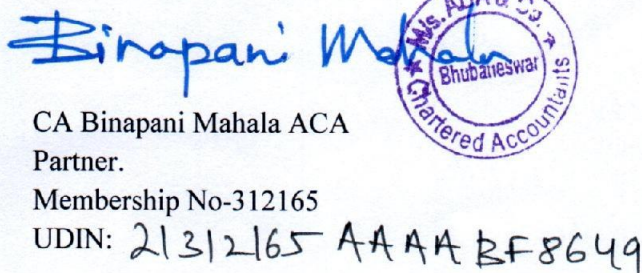 Binapani Mahala
Bhubaneswar
Chartered Accountants
CA Binapani Mahala ACA
Partner.
Membership No-312165
UDIN: 21312165 AAAA BF8649